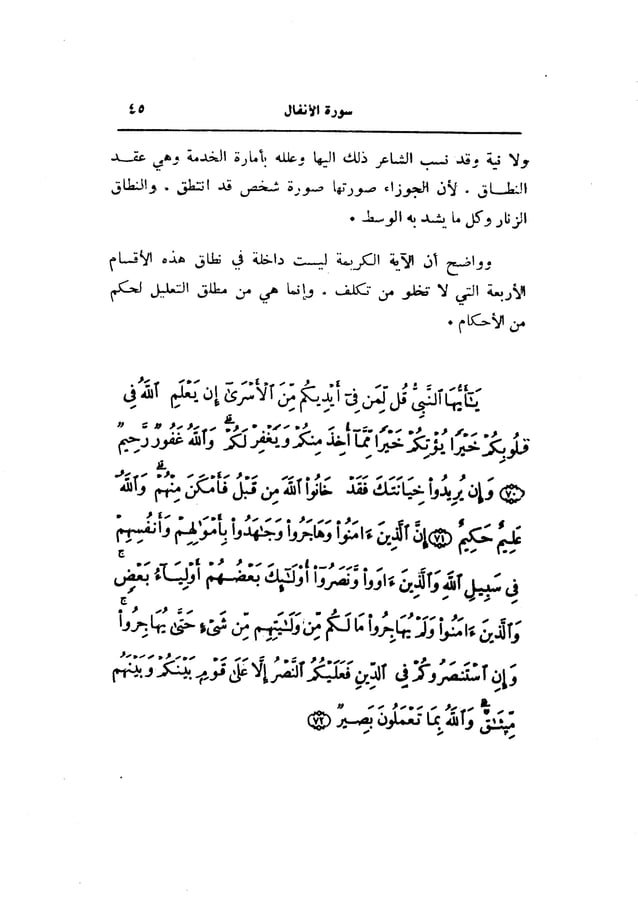 سورة الأنفال ٤٥
ولا نية وقد نسب الشاعر ذلك اليها وعلله بأمارة الخدمة وهي عقــد
النطــاق . لأن الجوزاء صورتها صورة شخص قد انتطق . والنطاق
الزنار وكل ما يشد به الوسط .
وواضح أن الآية الكريمة ليست داخلة في نطاق هذه الأقسام
الأربعة التي لا تخلو من تكلف . وإنما هي من مطلق التعليل لحكم
من الأحكام .
يَٰٓأَيُّهَا ٱلنَّبِىُّ قُل لِّمَن فِىٓ أَيْدِيكُم مِّنَ ٱلْأَسْرَىٰٓ إِن يَعْلَمِ ٱللَّهُ فِى
قُلُوبِكُمْ خَيْرًا يُؤْتِكُمْ خَيْرًا مِّمَّآ أُخِذَ مِنكُمْ وَيَغْفِرْ لَكُمْ ۗ وَٱللَّهُ غَفُورٌ رَّحِيمٌ
﴿٧٠﴾ وَإِن يُرِيدُوا۟ خِيَانَتَكَ فَقَدْ خَانُوا۟ ٱللَّهَ مِن قَبْلُ فَأَمْكَنَ مِنْهُمْ ۗ وَٱللَّهُ
عَلِيمٌ حَكِيمٌ ﴿٧١﴾ إِنَّ ٱلَّذِينَ ءَامَنُوا۟ وَهَاجَرُوا۟ وَجَٰهَدُوا۟ بِأَمْوَٰلِهِمْ وَأَنفُسِهِمْ
فِى سَبِيلِ ٱللَّهِ وَٱلَّذِينَ ءَاوَوا۟ وَّنَصَرُوٓا۟ أُو۟لَٰٓئِكَ بَعْضُهُمْ أَوْلِيَآءُ بَعْضٍ ۚ
وَٱلَّذِينَ ءَامَنُوا۟ وَلَمْ يُهَاجِرُوا۟ مَا لَكُم مِّن وَلَٰيَتِهِم مِّن شَىْءٍ حَتَّىٰ يُهَاجِرُوا۟ ۚ
وَإِنِ ٱسْتَنصَرُوكُمْ فِى ٱلدِّينِ فَعَلَيْكُمُ ٱلنَّصْرُ إِلَّا عَلَىٰ قَوْمٍۭ بَيْنَكُمْ وَبَيْنَهُم
مِّيثَٰقٌ ۗ وَٱللَّهُ بِمَا تَعْمَلُونَ بَصِيرٌ ﴿٧٢﴾